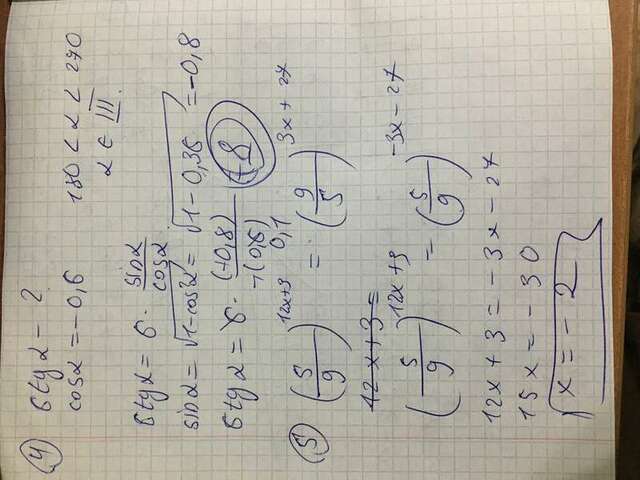 ④ 6tgα - ?
cosα = -0,6 180 < α < 270
α ∈ III.
6tgα = 6 · sinα/cosα
sinα = √1-cos²α = √1-0,36 = -0,8
6tgα = 6 · (-0,8)/-(0,6) = 8
0,1
⑤ (5/9)^12x+3 = (9/5)^3x+27
12x+3 =
(5/9)^12x+3 = (5/9)^-3x-27
12x+3 = -3x-27
15x = -30
x = -2